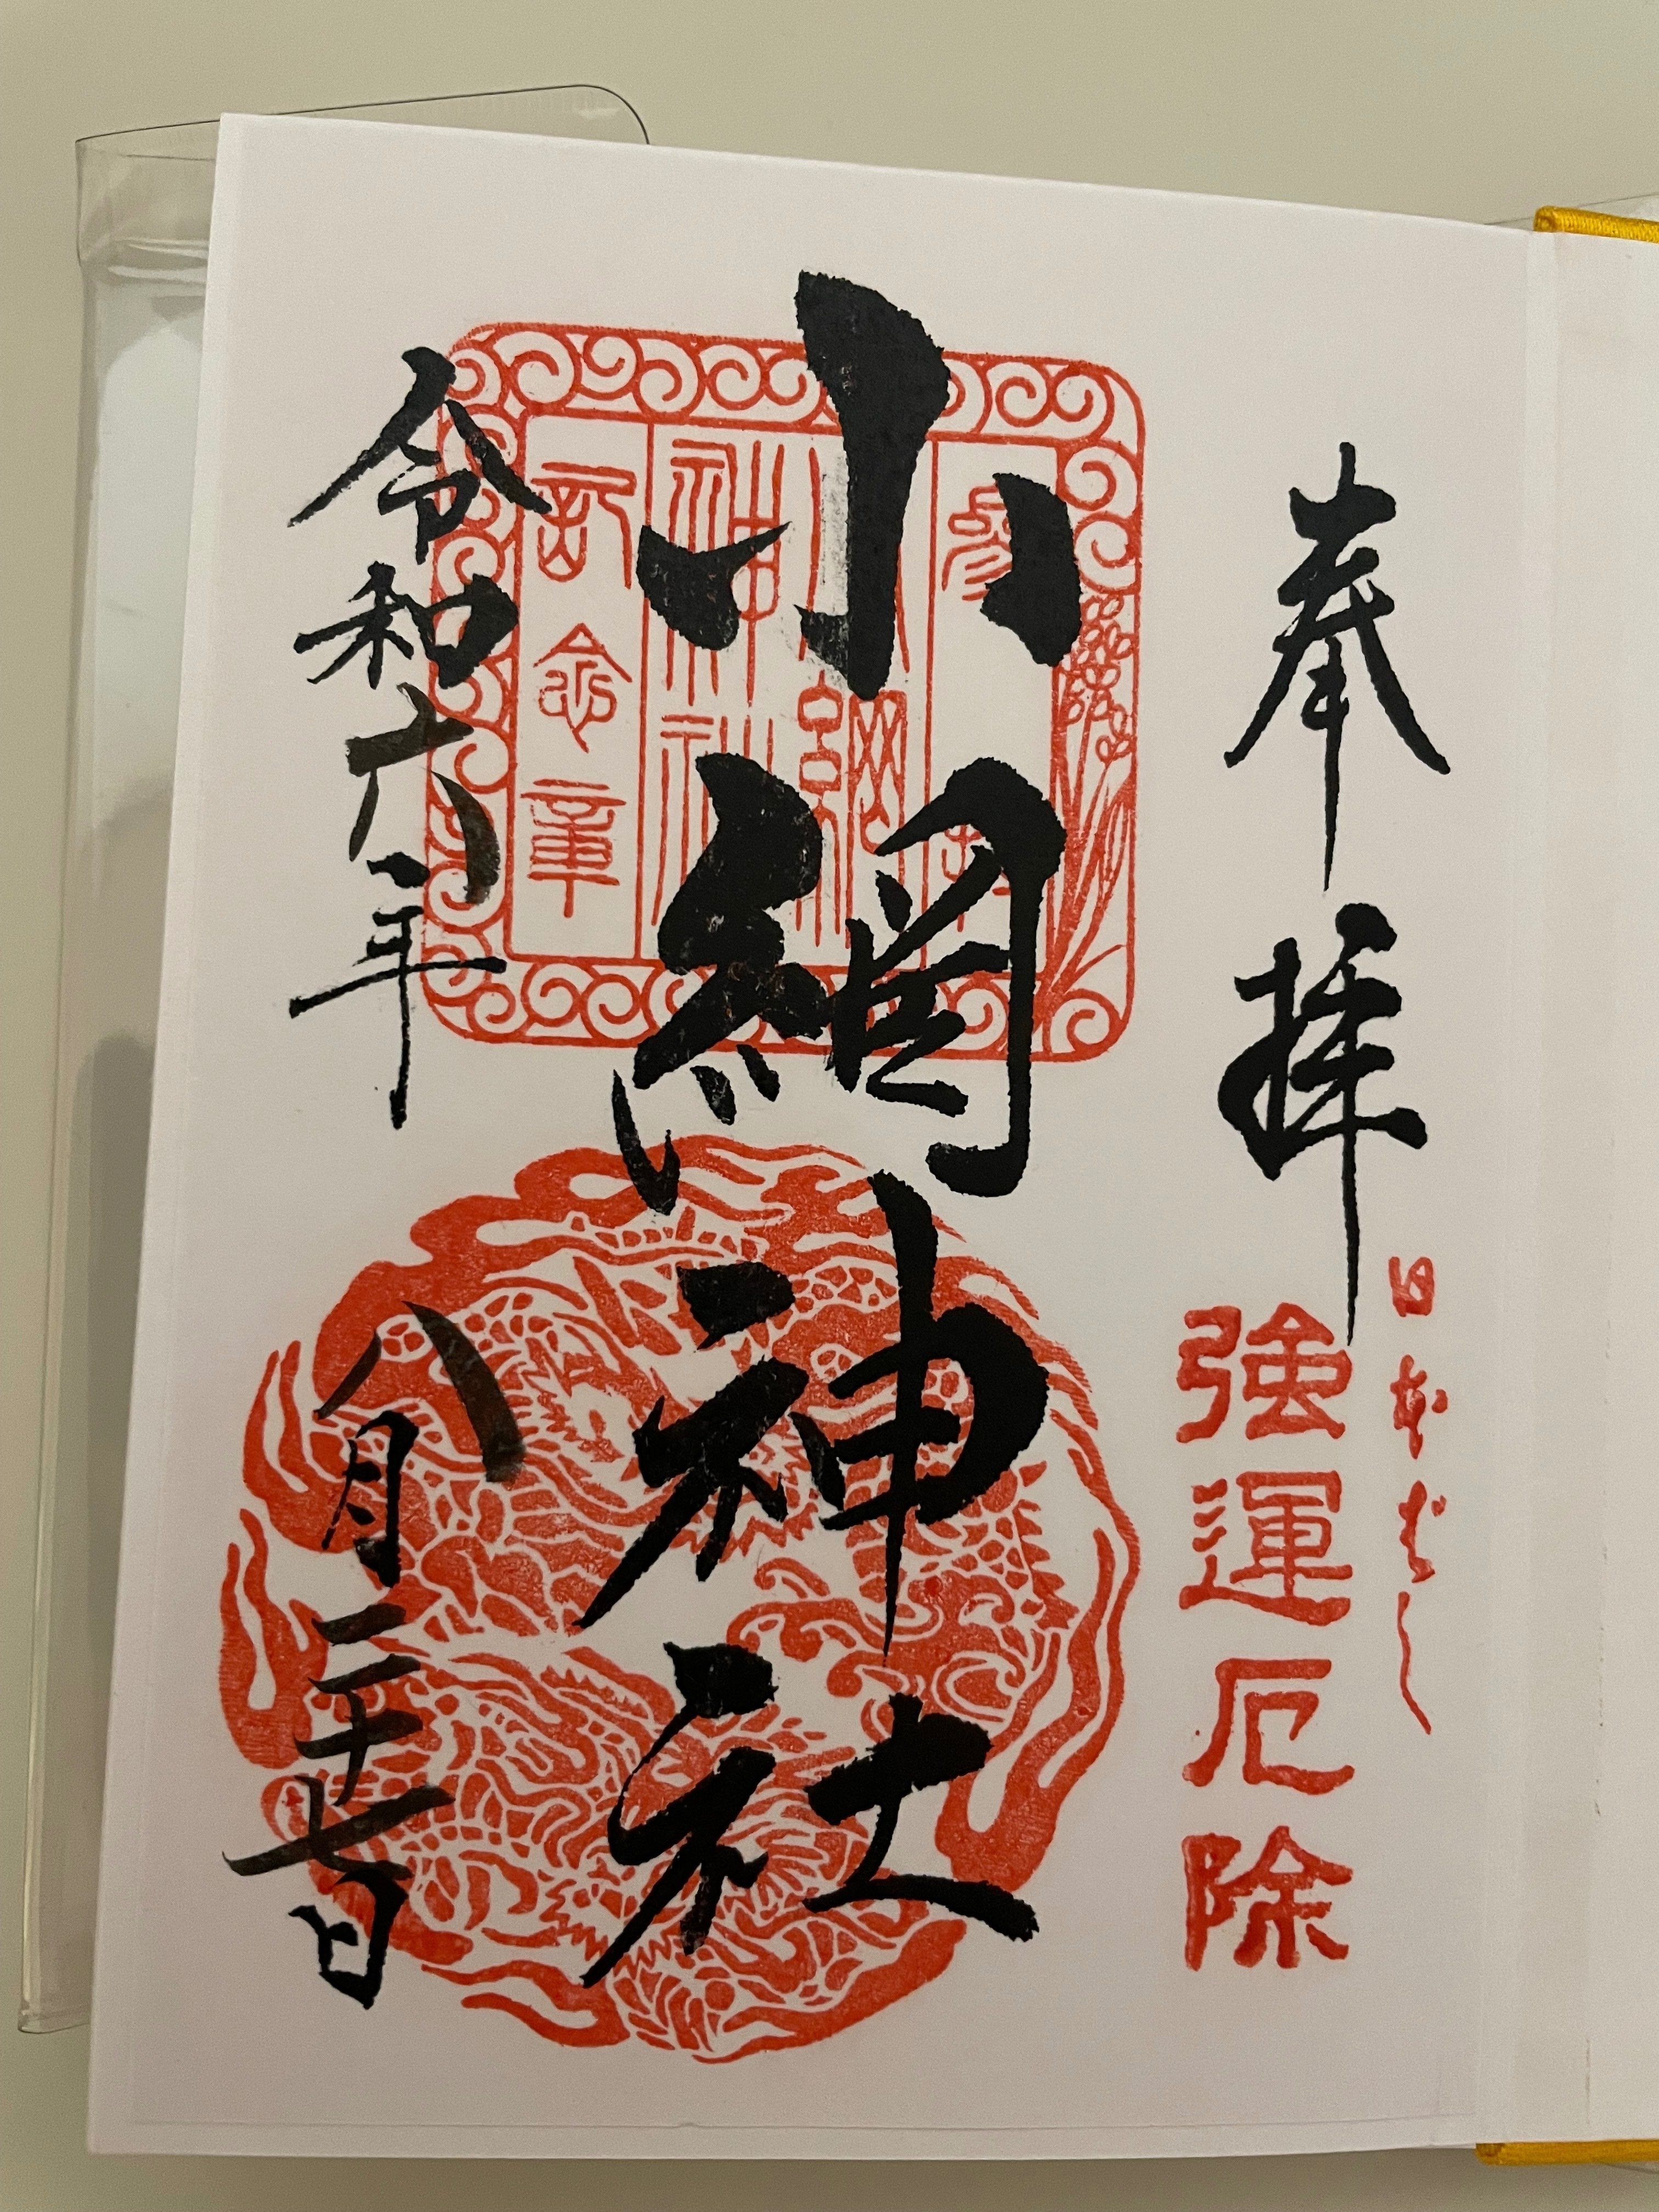 日本ばし
奉拝
強運厄除
小網神社
参拝
小網
神社
記念章
令和六年
八月二十七日